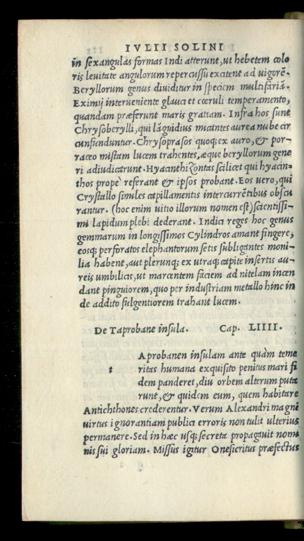 IVLII SOLINI
in sexangulas formas Indi atterunt, ut hebetem colo
ris leuitate angulorum repercussu excitent ad uigorẽ.
Beryllorum genus diuiditur in speciem multifariã.
Eximij interueniente glauci et cœruli temperamento,
quandam præferunt maris gratiam. Infra hos sunt
Chrysoberylli, qui lãguidius micantes aurea nube cir
cunfunduntur. Chrysoprasos quoq; ex auro, & por-
raceo mistam lucem trahentes, æque beryllorum gene
ri adiudicarunt. Hyacinthizontas scilicet qui hyacin-
thos prope referant & ipsos probant. Eos uero, qui
Crystallo similes capillamentis intercurrẽtibus obscu
rantur. (hoc enim uitio illorum nomen est) scientissi-
mi lapidum plebi dederunt. Indici reges hoc genus
gemmarum in longissimos Cylindros amant fingere,
eosq; perforatos elephantorum setis subligantes moni-
lia habent, aut plerunq; ex utraq; capite insertis au-
reis umbilicis, ut marcentem faciem ad nitelam incen
dant pinguiorem, quo per industriam metallo hinc in
de addito fulgentiorem trahant lucem.
De Taprobane insula. Cap. LIIII.
t
Aprobanen insulam ante quàm teme
ritas humana exquisito penitus mari fi
dem panderet, diu orbem alterum puta
runt, & quidem eum, quem habitare
Antichthones crederentur. Verum Alexandri magni
uirtus ignorantiam publici erroris non tulit ulterius
permanere. Sed in hæc usq; secreta propagauit nomi
nis sui gloriam. Missus igitur Onesicritus præfectus